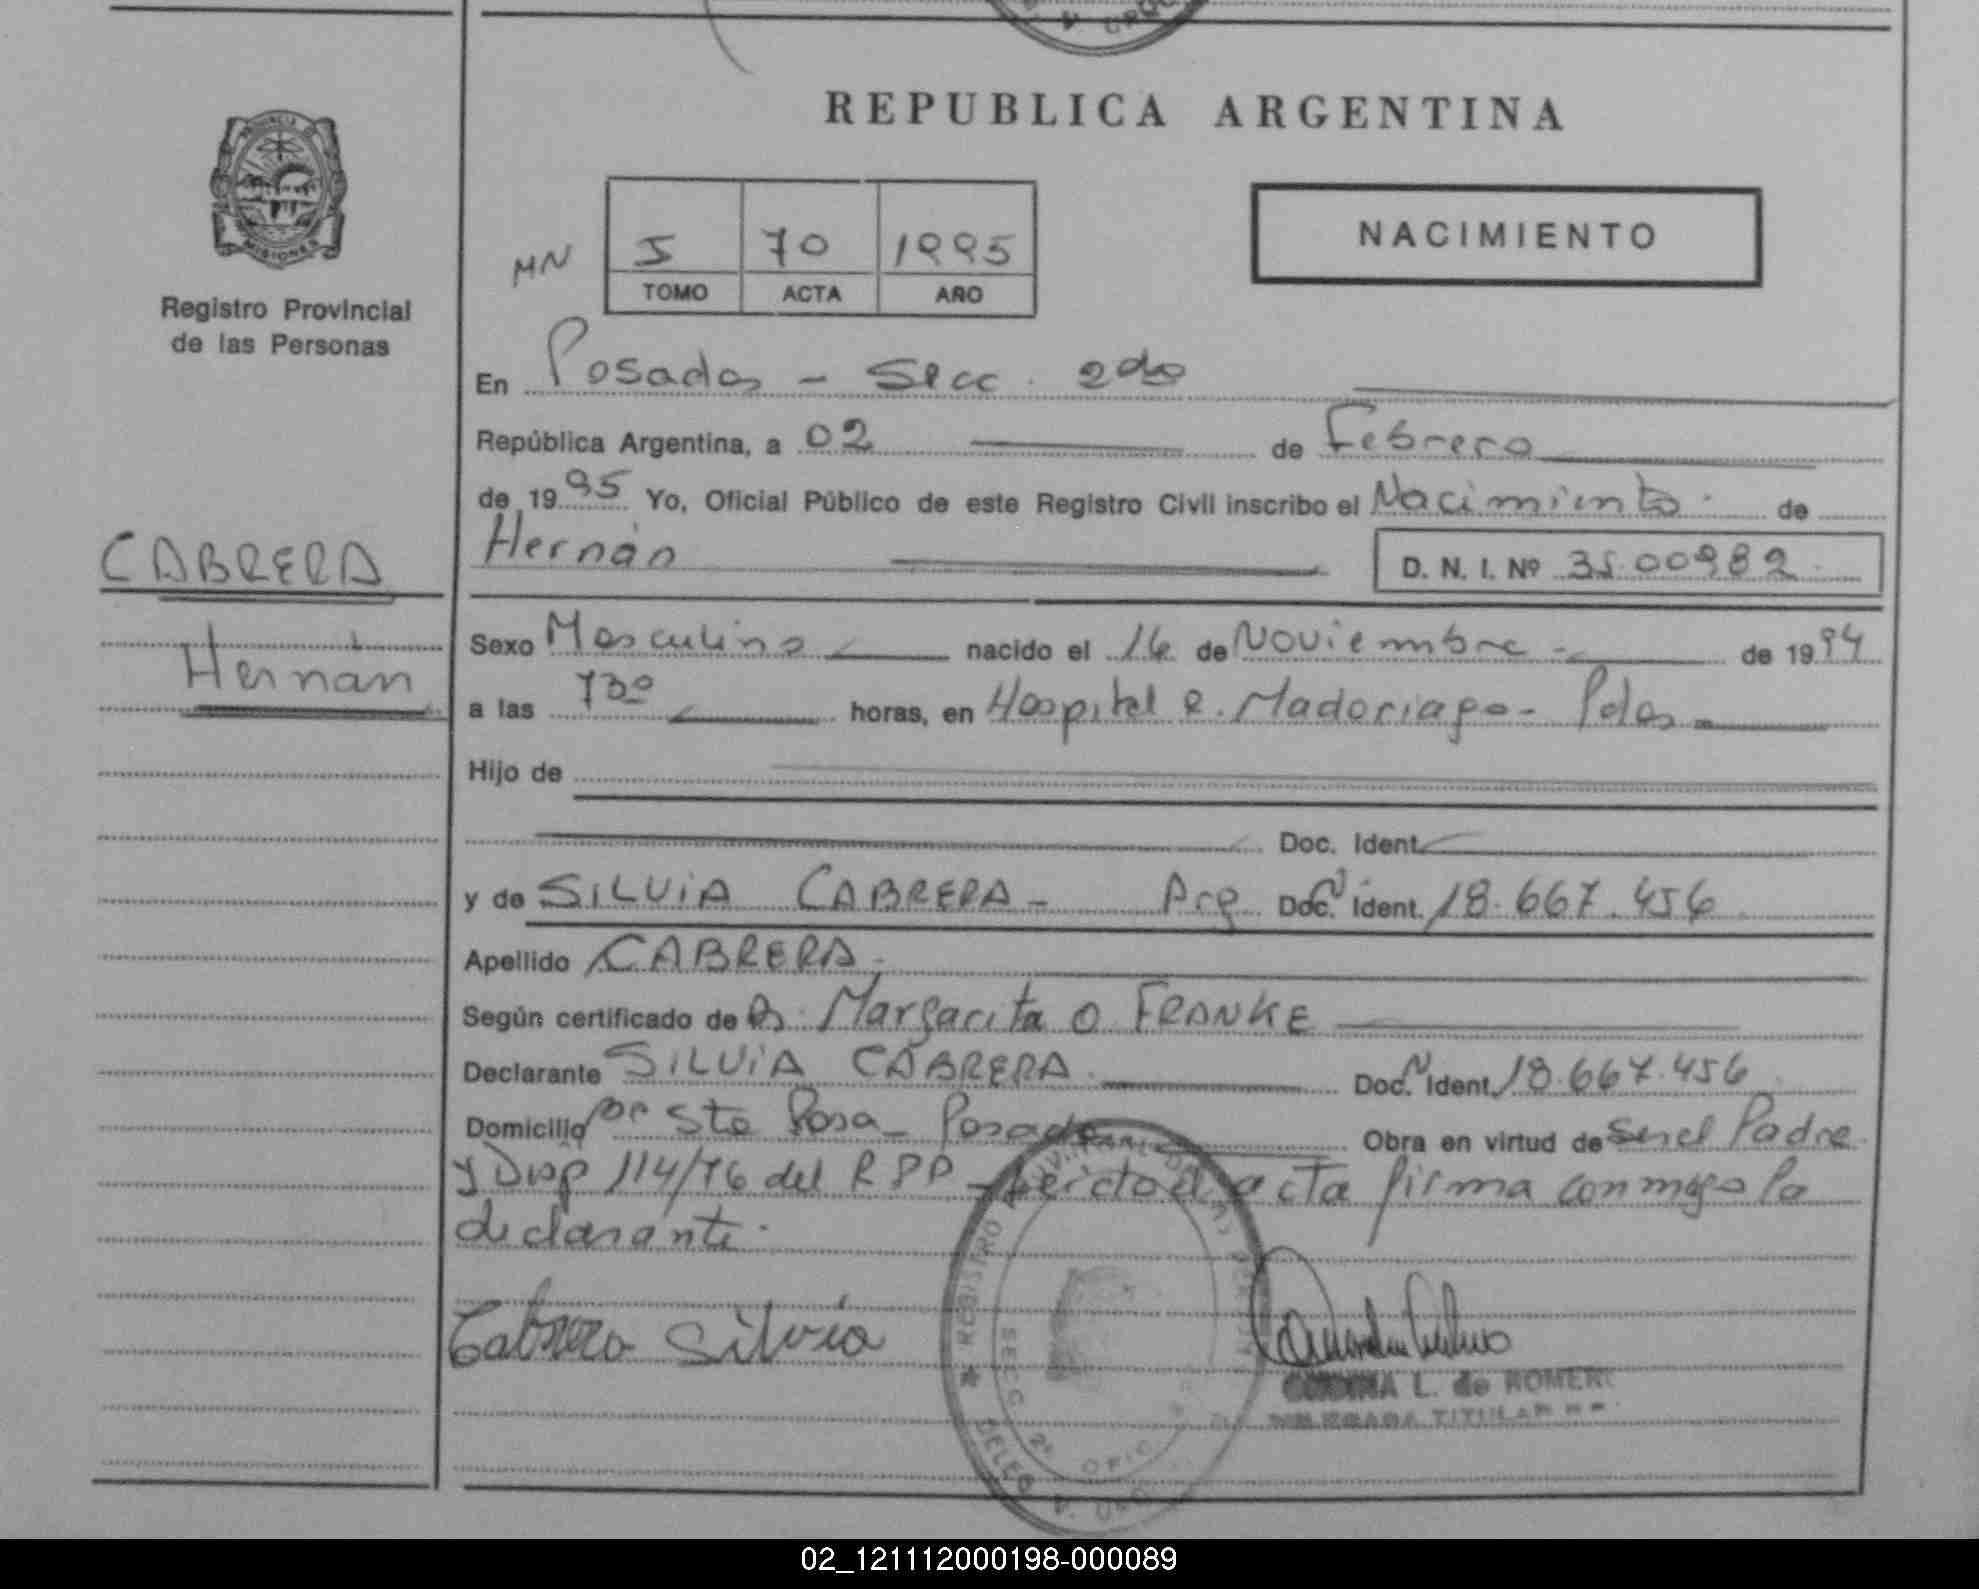 REPUBLICA ARGENTINA
PROVINCIA DE
MISIONES
Registro Provincial
de las Personas
NACIMIENTO
MN
5 70 1995
TOMO ACTA AÑO
En Posadas - Secc. 2da
República Argentina, a 02 de Febrero
de 1995 Yo, Oficial Público de este Registro Civil inscribo el Nacimiento de
Hernán D. N. I. Nº 35.00982
CABRERA
Hernán
Sexo Masculino nacido el 16 de Noviembre de 1994
a las 730 horas, en Hospital R. Madariaga - Pdas
Hijo de
Doc. Ident.
y de SILVIA CABRERA - Arg Doc. Ident. 18.667.456
Apellido CABRERA
Según certificado de Margarita O FRANKE
Declarante SILVIA CABRERA Doc. Ident. 18.667.456
Domicilio Sta Rosa - Posadas Obra en virtud de ser el Padre
y Disp 114/76 del RPP - Leída el acta firma conmigo la
declarante.
Cabrera Silvia
L. de ROMERO
TITULAR
REGISTRO PROVINCIAL DE LAS PERSONAS
SECC 2ª OFIC
DELEG
02_121112000198-000089